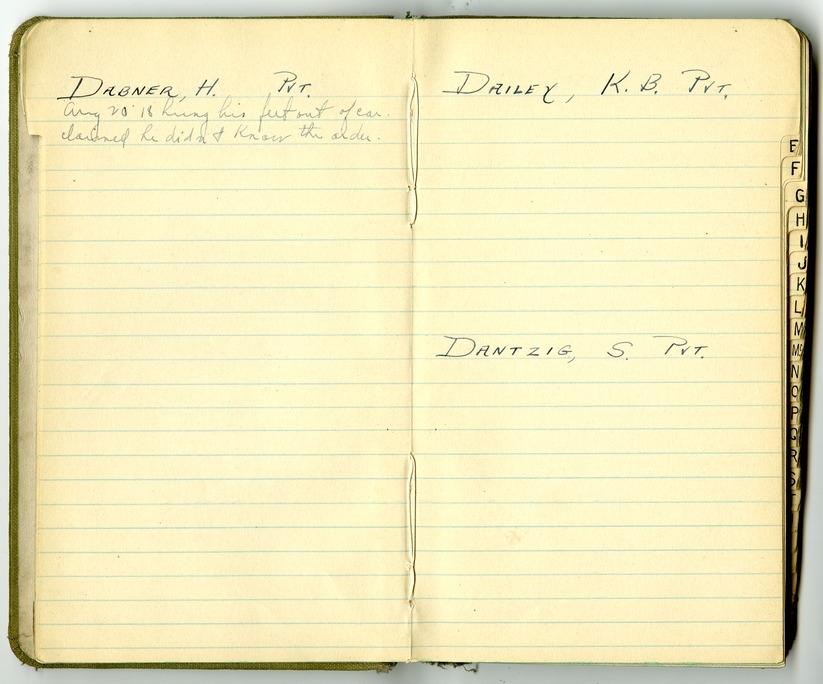 DABNER, H. PVT.
Aug 20 18 hung his feet out of car.
claimed he didn't know the order.
DAILEY, K. B. PVT.
DANTZIG, S. PVT.
E
F
G
H
I
J
K
L
M
Mc
N
O
P
Q
R
S
T